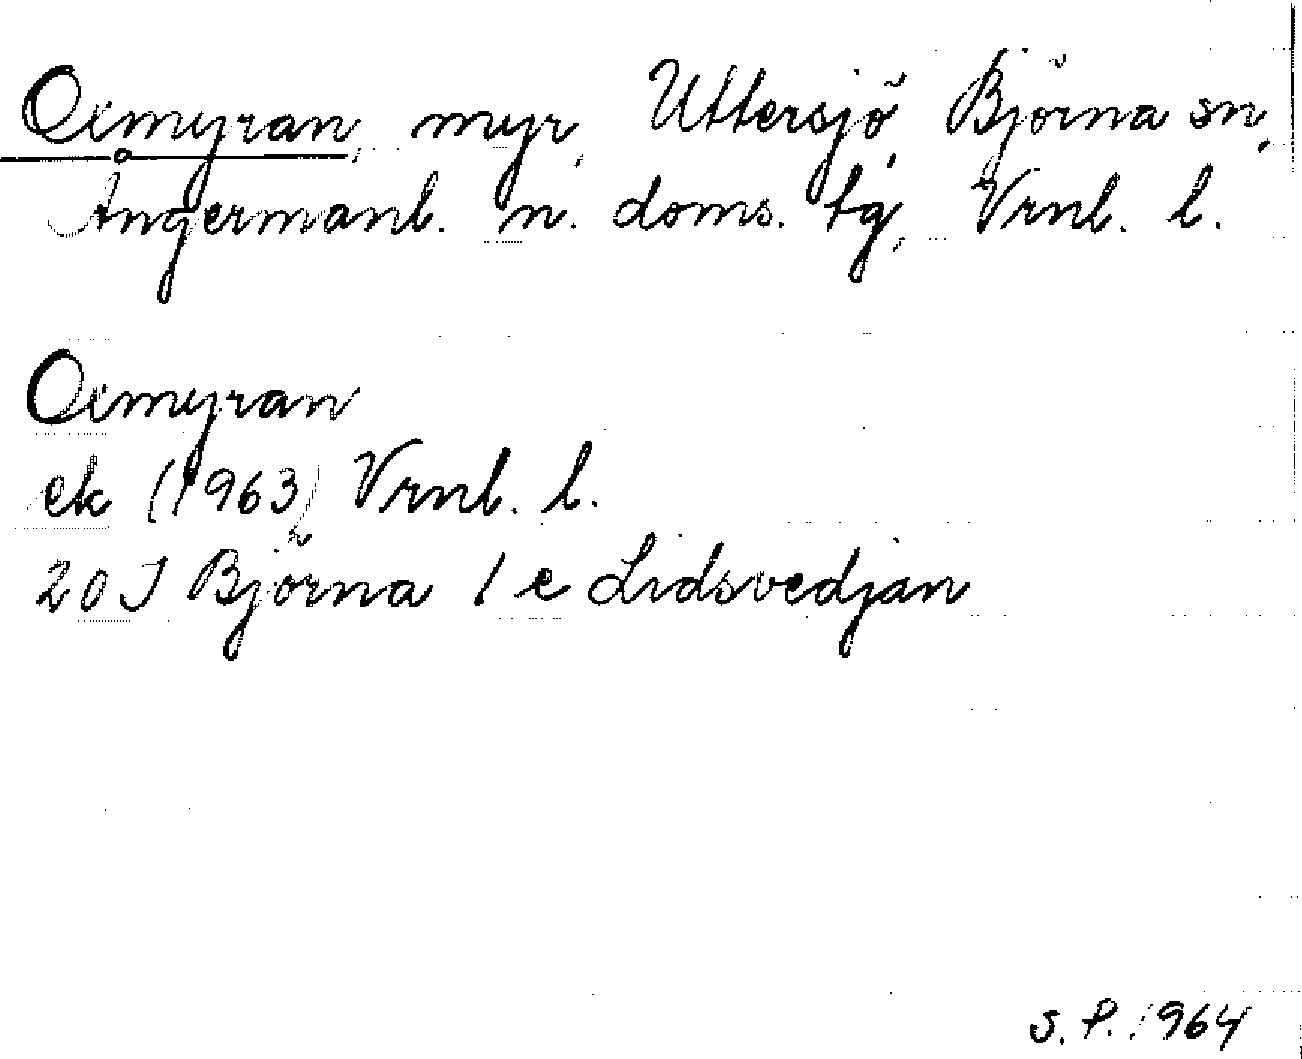 Oxmyran, myr, Uttersjö, Björna sn,
Ångermanl. n. doms. tg, Vrnl. l.
Oxmyran
ek (1963) Vrnl. l.
20 J Björna 1 e Lidsvedjan
S. P. 1964